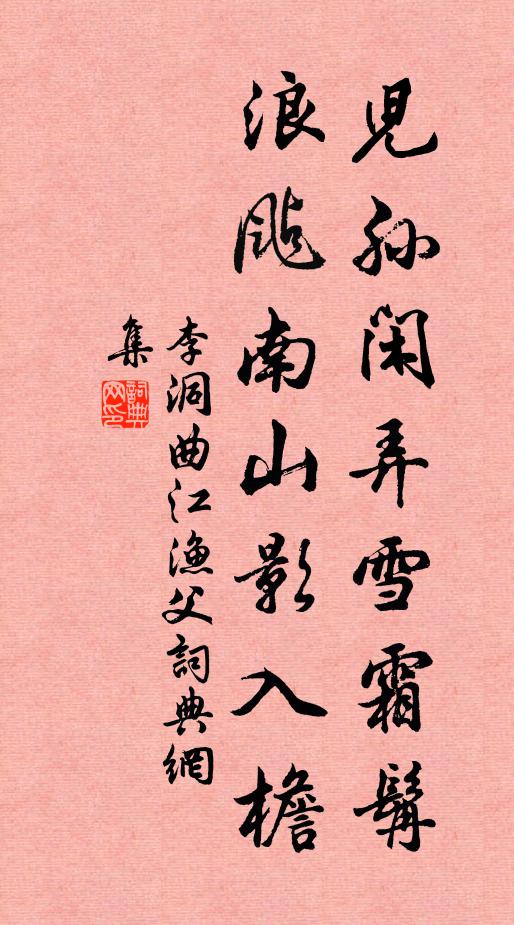 児孫閑弄雪霜髯
浪飐南山影入檐
李洞曲江漁父詞典網
集
詞典
网印